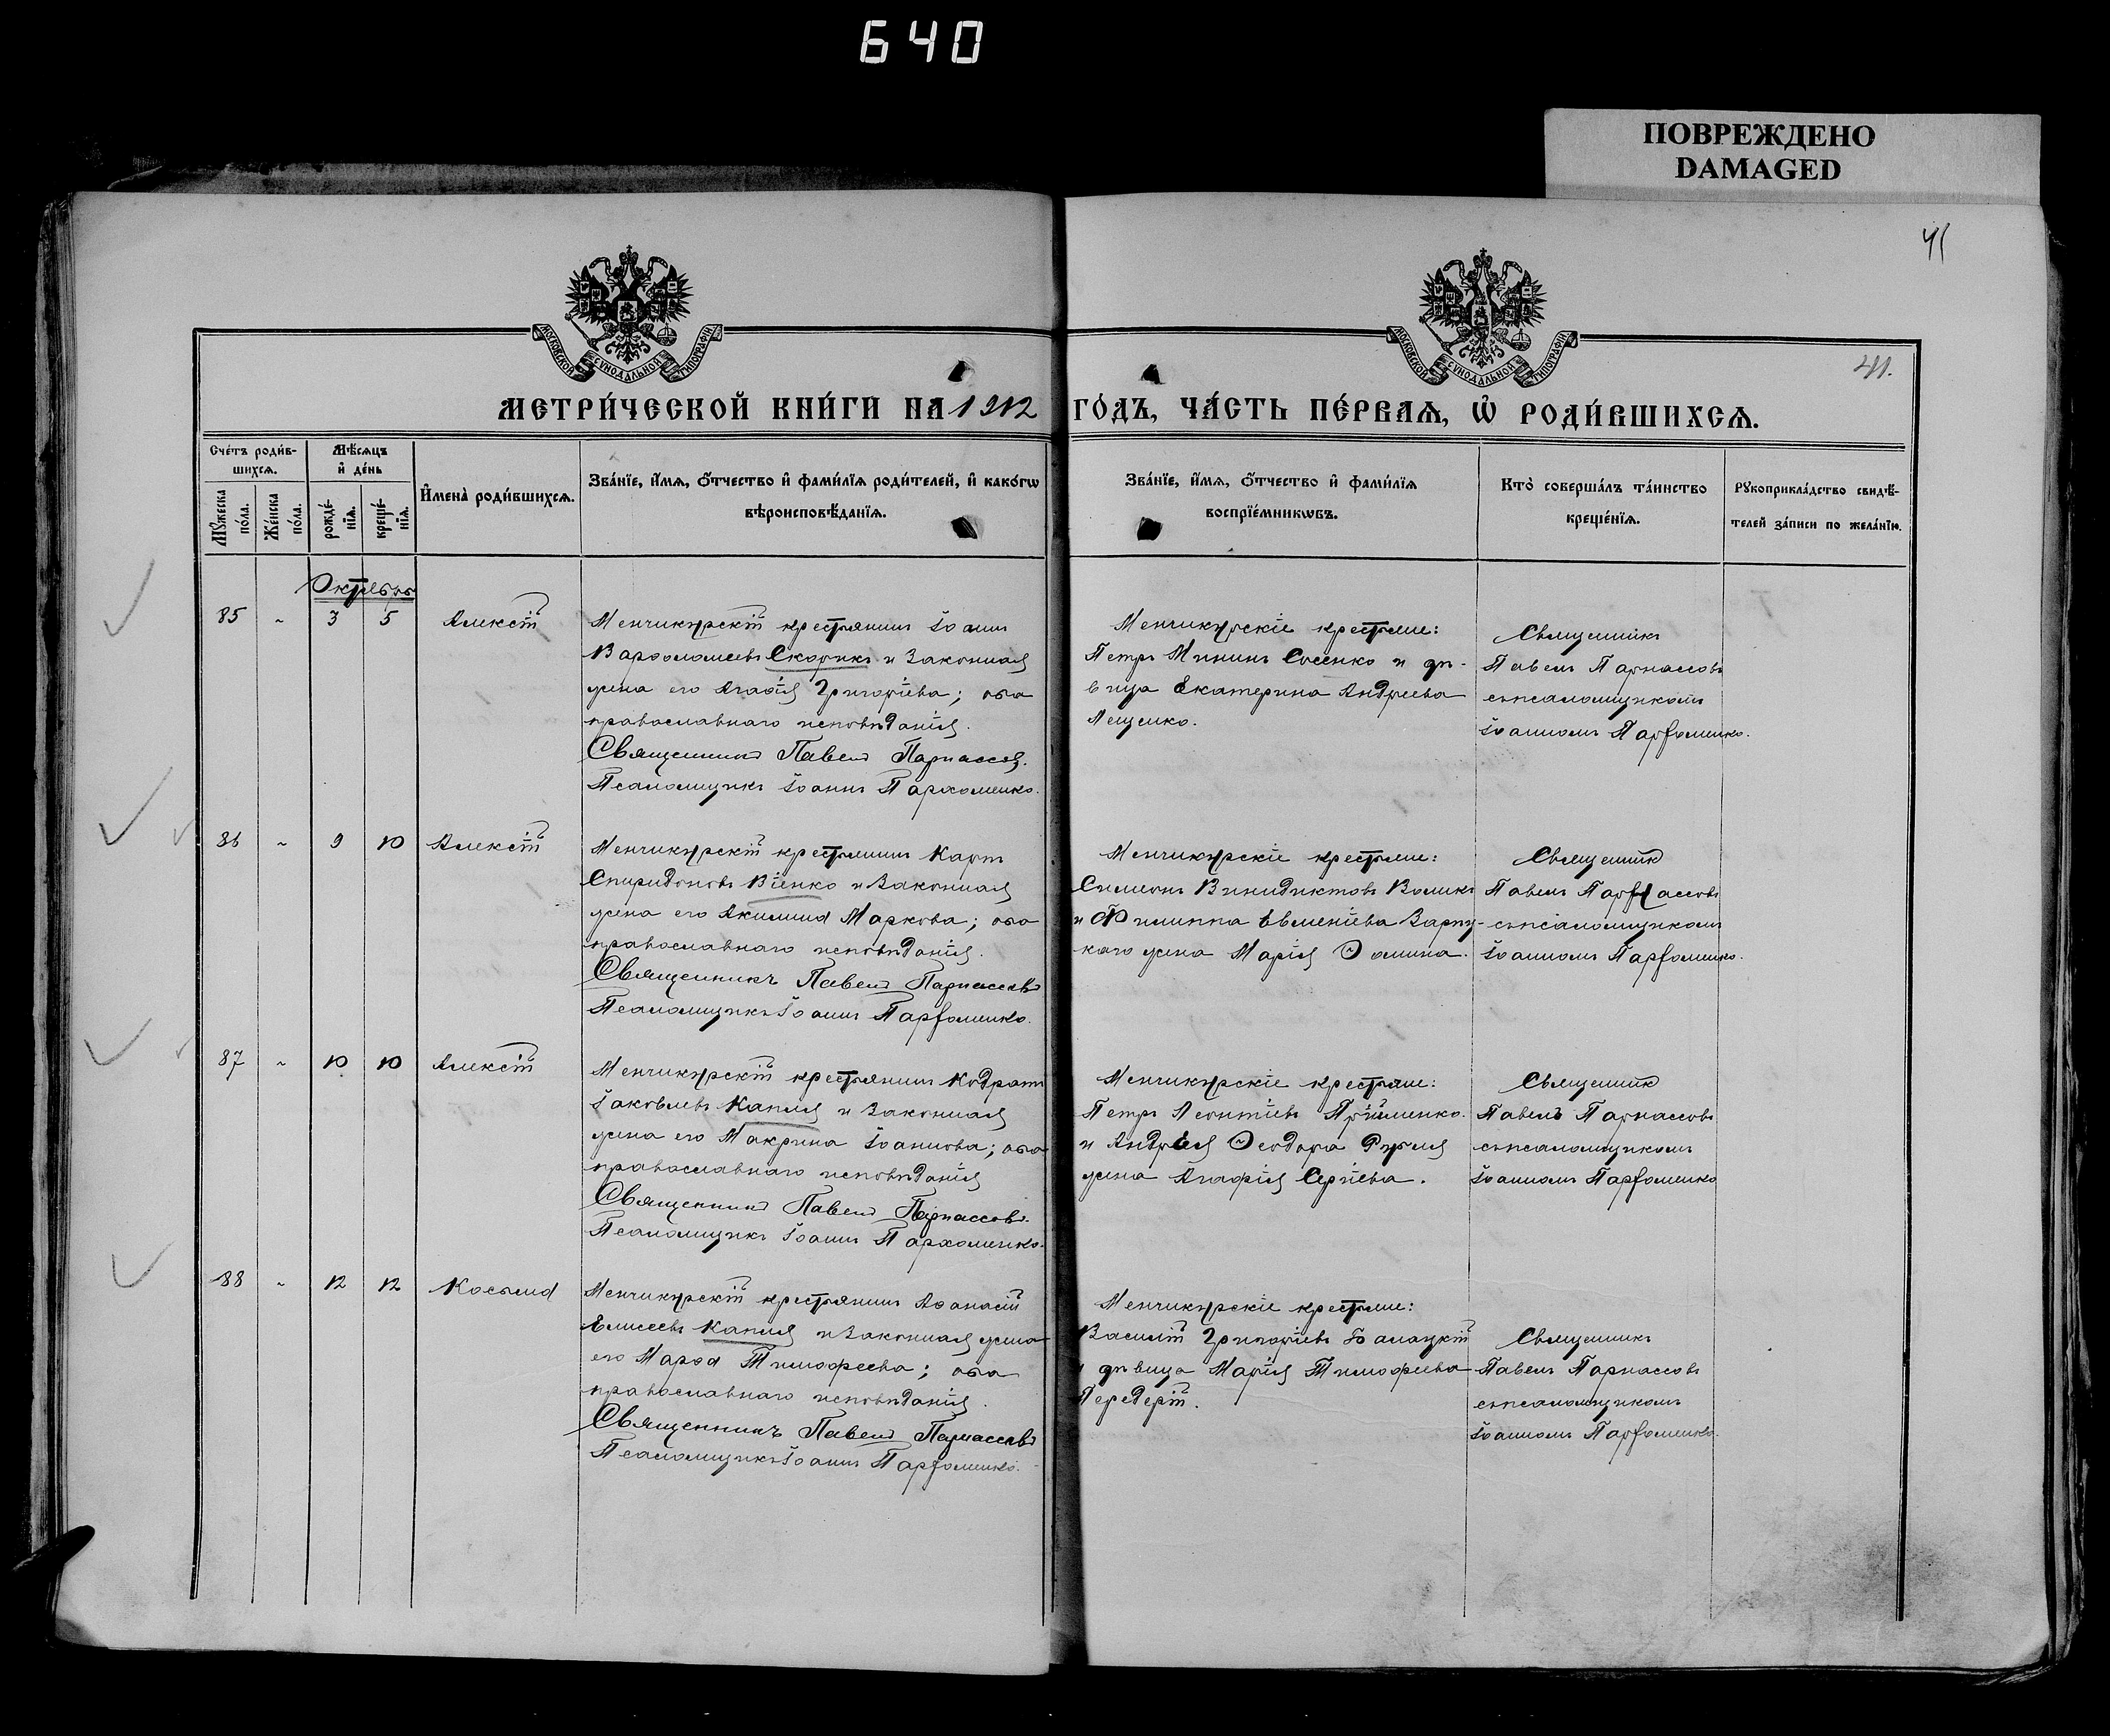 640
ПОВРЕЖДЕНО
DAMAGED
41
41.
МОСКОВСКОЙ СѴНОДАЛЬНОЙ ТИПОГРАФІИ
МОСКОВСКОЙ СѴНОДАЛЬНОЙ ТИПОГРАФІИ
МЕТРИ́ЧЕСКОЙ КНИ́ГИ НА 1912 ГО́ДЪ, ЧА́СТЬ ПЕ́РВАѦ, Ѡ҆ РОДИ́ВШИХСѦ.
Сче́тъ роди́в-
шихсѧ.
Мѣ́сѧцъ
и҆ де́нь
Мꙋ́жеска
по́ла.
Же́нска
по́ла.
рожде́-
нїѧ.
креще́-
нїѧ.
И҆мена̀ роди́вшихсѧ.
Зва́нїе, и҆́мѧ, ѻ҆́тчество и҆ фами́лїѧ роди́телей, и҆ како́гѡ
вѣроисповѣ́данїѧ.
Зва́нїе, и҆́мѧ, ѻ҆́тчество и҆ фами́лїѧ
воспрїе́мникѡвъ.
Кто̀ соверша́лъ та́инство
креще́нїѧ.
Рꙋкоприкла́дство свидѣ́-
телей за́писи по жела́нїю.
Октябрь
85 ~ 3 5 Алексій
Менчикурскій крестьянинъ Іоаннъ
Варѳоломеевъ Скорикъ и законная
жена его Агаѳія Григоріева; оба
православнаго исповѣданія.
Священникъ Павелъ Парнассовъ.
Псаломщикъ Іоаннъ Пархоменко.
Менчикурскіе крестьяне:
Петръ Мининъ Сосенко и дѣ-
вица Екатерина Андреева
Лещенко.
Священникъ
Павелъ Парнассовъ
съ псаломщикомъ
Іоанномъ Парѳоменко.
86 ~ 9 10 Алексій
Менчикурскій крестьянинъ Карпъ
Спиридоновъ Віенко и законная
жена его Акилина Маркова; оба
православнаго исповѣданія.
Священникъ Павелъ Парнассовъ
Псаломщикъ Іоаннъ Парѳоменко.
Менчикурскіе крестьяне:
Симеонъ Винидиктовъ Воликъ
и Филиппа Евменіева Зариц-
каго жена Марія Ѳомина.
Священникъ
Павелъ Парнассовъ
съ псаломщикомъ
Іоанномъ Парѳоменко.
87 ~ 10 10 Алексій
Менчикурскій крестьянинъ Кодратъ
Іаковлевъ Капля и законная
жена его Макрина Іоаннова; оба
православнаго исповѣданія
Священникъ Павелъ Парнассовъ.
Псаломщикъ Іоаннъ Пархоменко.
Менчикурскіе крестьяне:
Петръ Леонтіевъ Пріименко.
и Андрея Ѳеодора Рубля
жена Агафія Сергіева.
Священникъ
Павелъ Парнассовъ
съ псаломщикомъ
Іоанномъ Парѳоменко
88 ~ 12 12 Косьма
Менчикурскій крестьянинъ Аѳанасій
Елисеевъ Капля и законная жена
его Марѳа Тимофеева; оба
православнаго исповѣданія.
Священникъ Павелъ Парнассовъ
Псаломщикъ Іоаннъ Парѳоменко.
Менчикурскіе крестьяне:
Василій Григоріевъ Балацкій
и дѣвица Марія Тимофеева
Передерій.
Священникъ
Павелъ Парнассовъ
съ псаломщикомъ
Іоанномъ Парѳоменко.